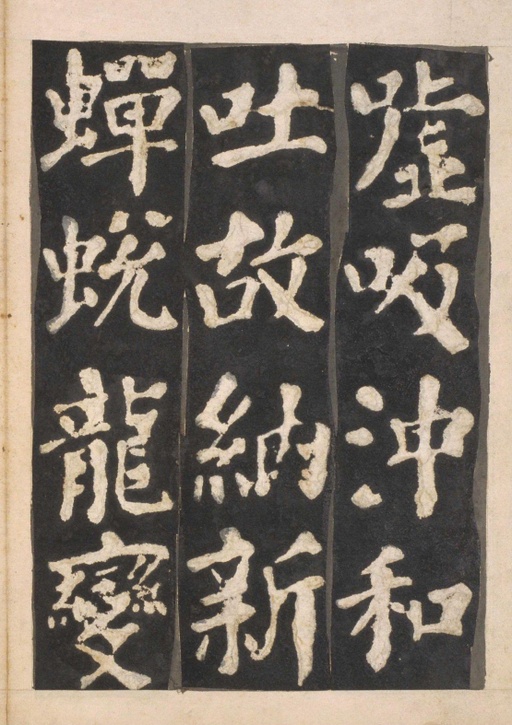 噓吸沖和
吐故納新
蟬蛻龍變